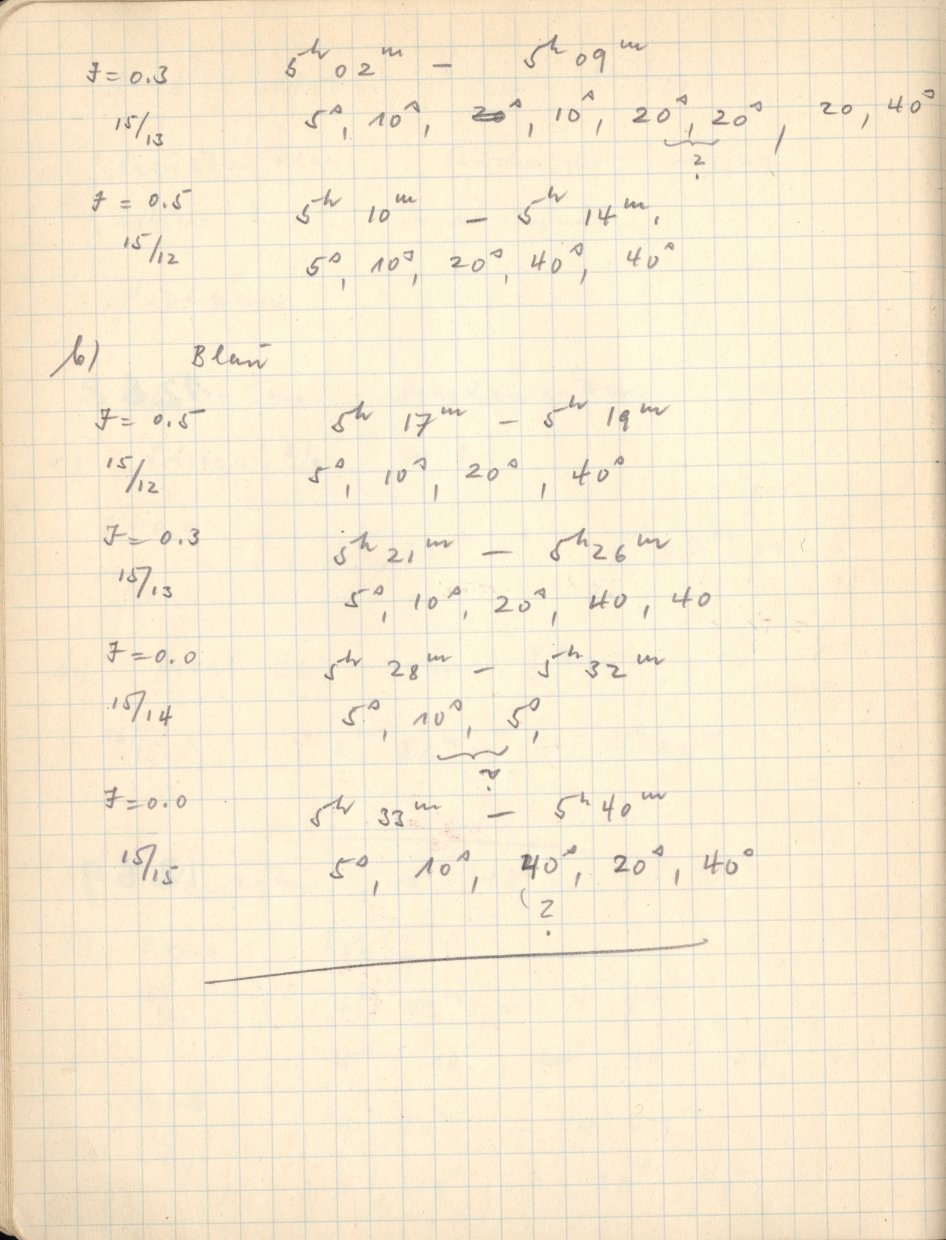 I = 0.3 5ʰ 02ᵐ — 5ʰ 09ᵐ
15/13 5ˢ, 10ˢ, 20ˢ, 10ˢ, 20ˢ, 20ˢ, 20, 40ˢ
?
I = 0.5 5ʰ 10ᵐ — 5ʰ 14ᵐ.
15/12 5ˢ, 10ˢ, 20ˢ, 40ˢ, 40ˢ
b) Blau
I = 0.5 5ʰ 17ᵐ — 5ʰ 19ᵐ
15/12 5ˢ, 10ˢ, 20ˢ, 40ˢ
I = 0.3 5ʰ 21ᵐ — 5ʰ 26ᵐ
15/13 5ˢ, 10ˢ, 20ˢ, 40, 40
I = 0.0 5ʰ 28ᵐ — 5ʰ 32ᵐ
15/14 5ˢ, 10ˢ, 5ˢ,
?
I = 0.0 5ʰ 33ᵐ — 5ʰ 40ᵐ
15/15 5ˢ, 10ˢ, 40ˢ, 20ˢ, 40ˢ
(?